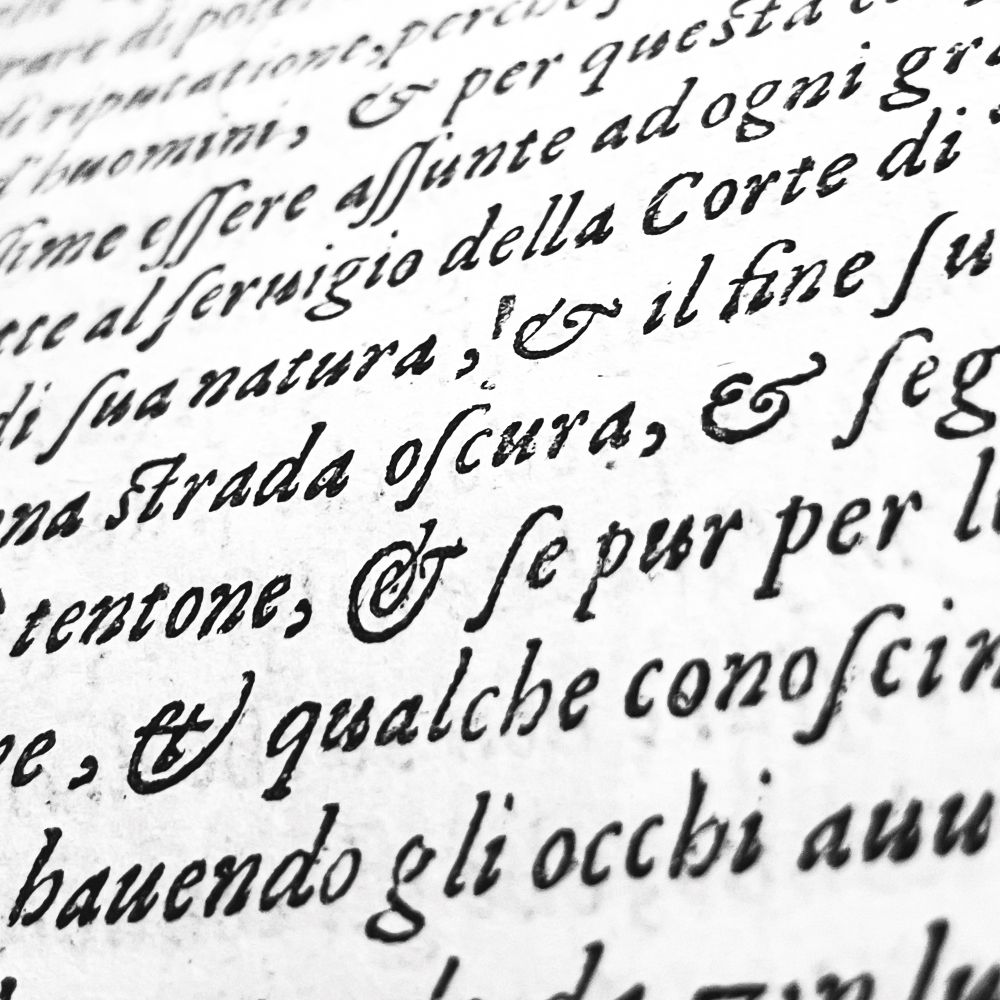 di riputatione, perche
d'huomini, & per questa
ſſime eſſere aſſunte ad ogni gra
al ſeruigio della Corte di
di ſua natura, & il fine ſu
una strada oſcura, & ſeg
tentone, & ſe pur per l
, & qualche conoſcim
hauendo gli occhi auu